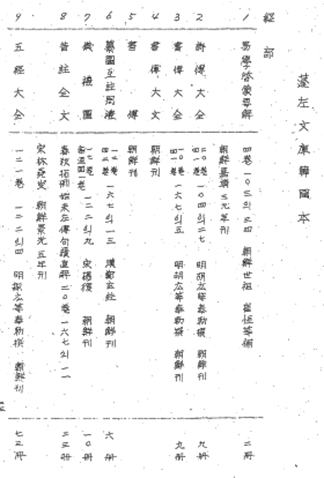 蓬左文庫韓國本
經部
1 易學啓蒙要解 四卷 一〇三의三四 朝鮮世祖 崔恒等編
朝鮮 刊 二冊
2 詩傳大全 二〇卷 一〇四의二七 明胡廣等奉勅撰 朝鮮刊 九冊
3 書傳大全 一〇卷 一六七의五 明胡廣等奉勅撰 朝鮮刊 九冊
4 書傳大文 朝鮮刊
5 書傳 朝鮮刊
6 纂圖互註周禮 一二卷 一六七의一三 漢鄭玄註 朝鮮刊 六冊
7 儀禮圖 一七卷 一二二의九 宋楊復 朝鮮刊 一〇冊
8 音註全文 春秋括例始末左傳句讀直解 七〇卷 一六七의一一
宋林堯叟 朝鮮景元五年刊 二三冊
9 五經大全 一二一卷 一二二의四 明胡廣等奉勅撰 朝鮮刊 七三冊